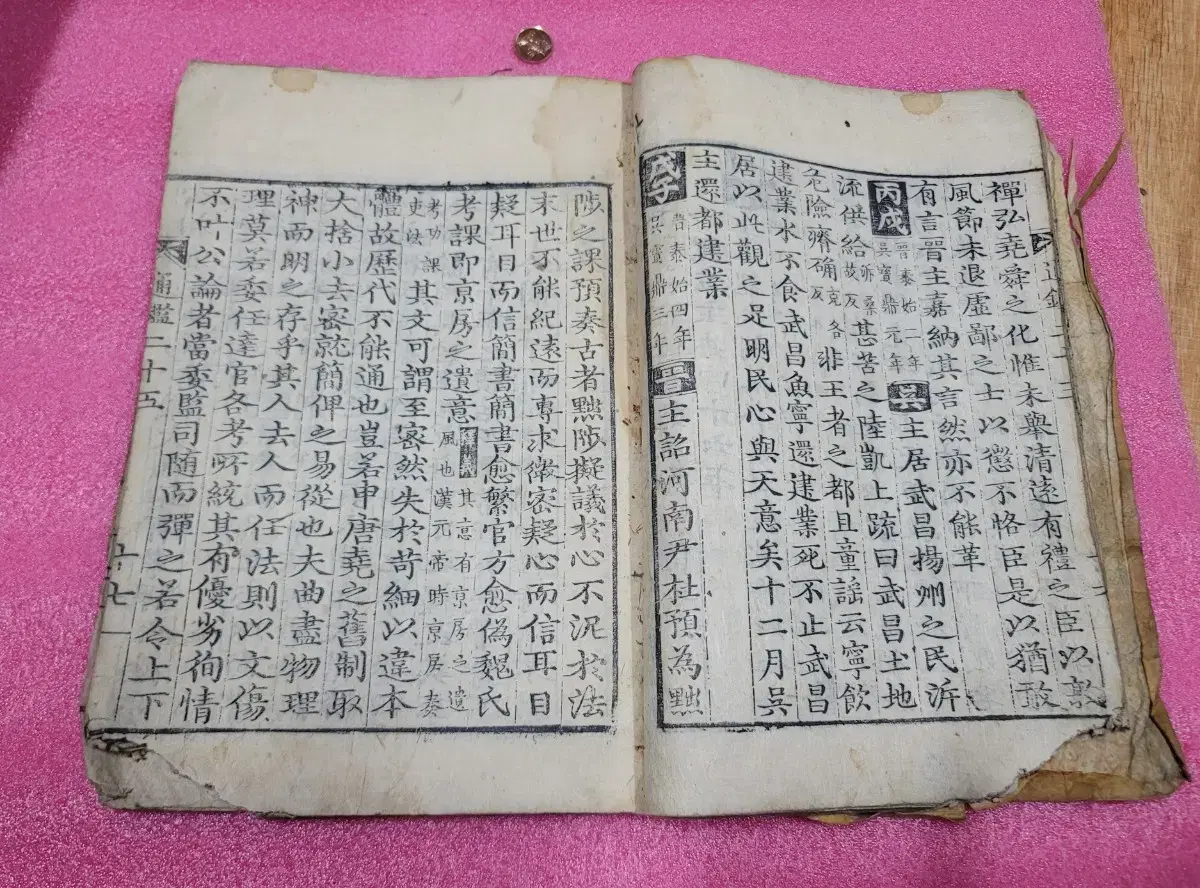 禪弘堯舜之化惟未舉清遠有禮之臣以敦
風節未退虛鄙之士以懲不恪臣是以猶敢
有言晉主嘉納其言然亦不能革
丙戌晉泰始二年吳寶鼎元年吳主居武昌揚州之民泝
流供給亦桑故反甚苦之陸凱上疏曰武昌土地
危險塉确克各反非王者之都且童謠云寧飲
建業水不食武昌魚寧還建業死不止武昌
居以此觀之足明民心與天意矣十二月吳
主還都建業
戊子晉泰始四年吳寶鼎三年晉主詔河南尹杜預為黜
陟之課預奏古者黜陟擬議於心不泥於法
末世不能紀遠而專求纖密疑心而信耳目
疑耳目而信簡書簡書愈繁官方愈偽魏氏
考課即京房之遺意釋義其意有京房之遺風也漢元帝時京房奏
考功課吏法其文可謂至密然失於苛細以違本
體故歷代不能通也豈若申唐堯之舊制取
大捨小去密就簡俾之易從也夫曲盡物理
神而明之存乎其人去人而任法則以文傷
理莫若委任達官各考所統其有優劣徇情
不叶公論者當委監司隨而彈之若令上下
通鑑二十五